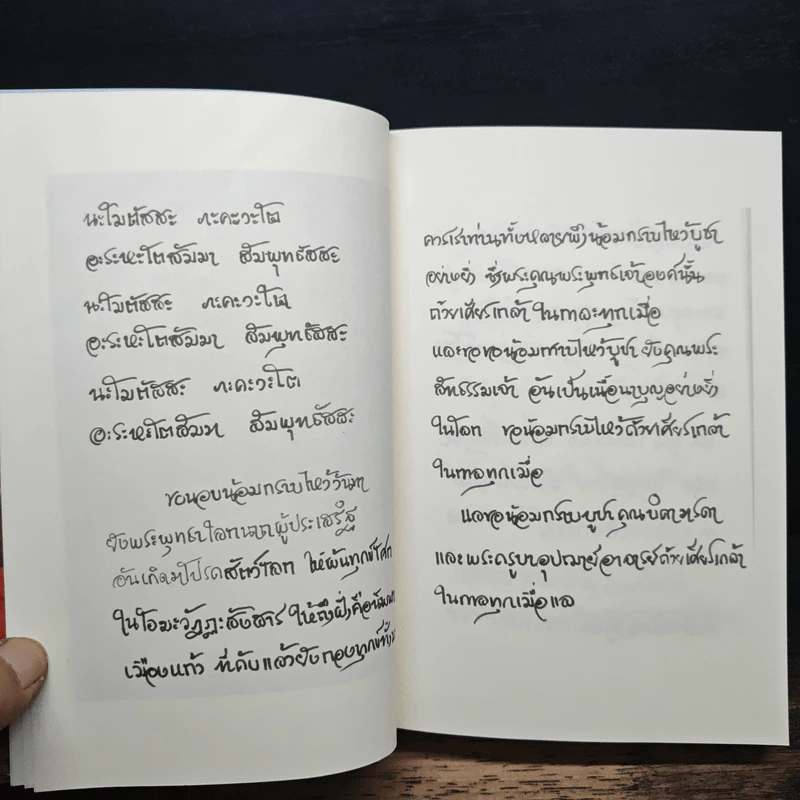 นะโมตัสสะ ภะคะวะโต
อะระหะโตสัมมา สัมพุทธัสสะ
นะโมตัสสะ ภะคะวะโต
อะระหะโตสัมมา สัมพุทธัสสะ
นะโมตัสสะ ภะคะวะโต
อะระหะโตสัมมา สัมพุทธัสสะ
ขอนอบน้อมกราบไหว้วันทา
ยังพระพุทธาโลกนาถาผู้ประเสริฐ
อันเกิดมาโปรดสัตว์โลก ให้พ้นทุกข์โศก
ในโอฆะวัฏฏะสังสาร ให้ถึงฝั่งคือ
เมืองแก้ว ที่ดับแล้วยังกองทุกข์
ควรเราท่านทั้งหลายพึงน้อมกราบไหว้บูชา
อย่างยิ่ง ซึ่งพระคุณพระพุทธเจ้าองค์นั้น
ด้วยเศียรเกล้า ในกาละทุกเมื่อ
และขอน้อมกราบไหว้บูชา ยังคุณพระ
สัทธรรมเจ้า อันเป็นเนื้อนาบุญอย่างยิ่ง
ในโลก ขอน้อมกราบไหว้ด้วยเศียรเกล้า
ในกาลทุกเมื่อ
แลขอน้อมกราบบูชาคุณบิดามารดา
และพระครูบาอุปฌาย์อาจารย์ด้วยเศียรเกล้า
ในกาลทุกเมื่อแล